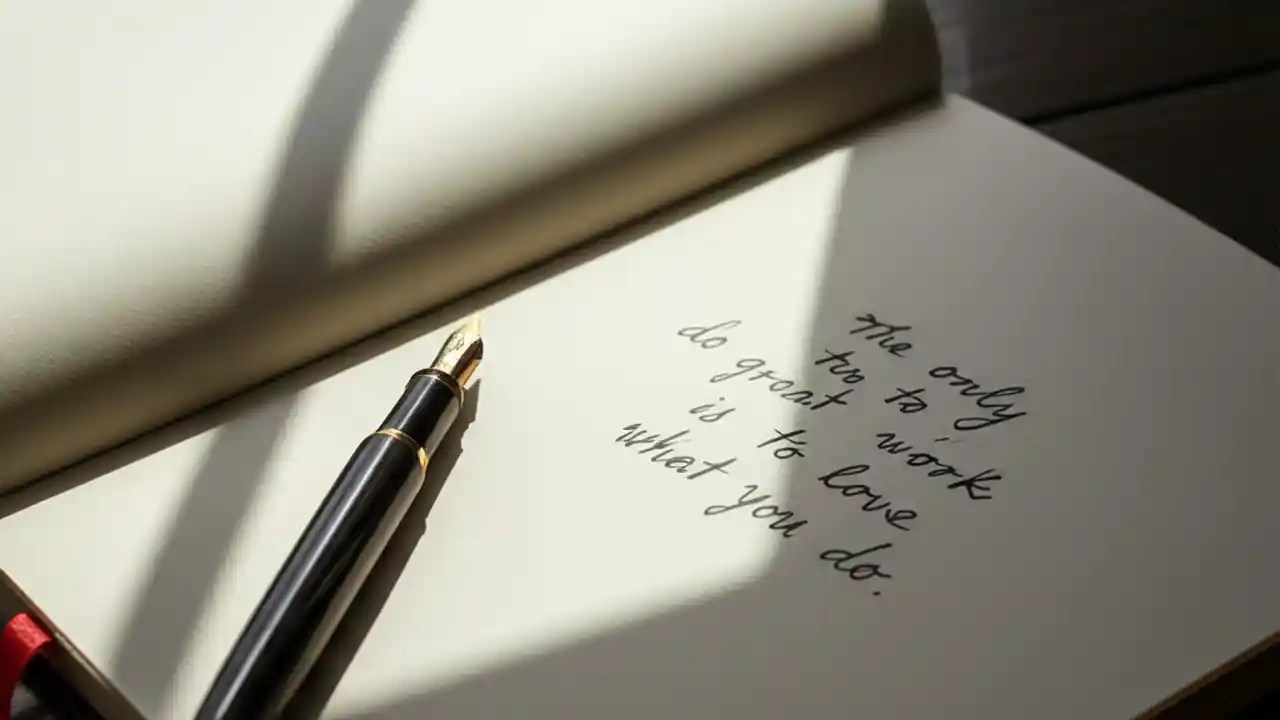 The only
tro to
do great work
is to love
what you do.